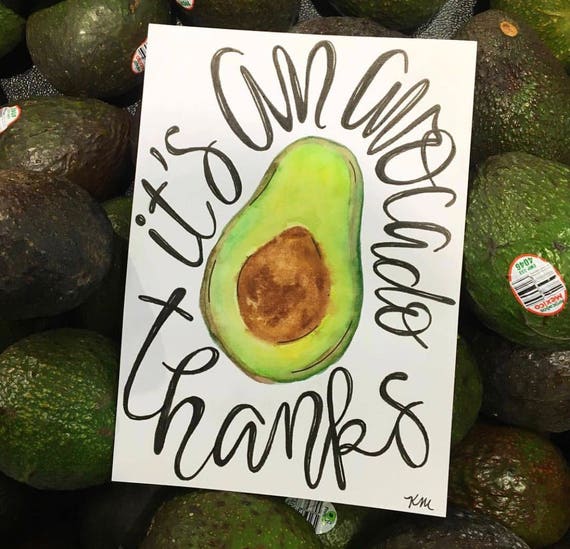 it's an avocado
thanks
KM
4046
MEXICO